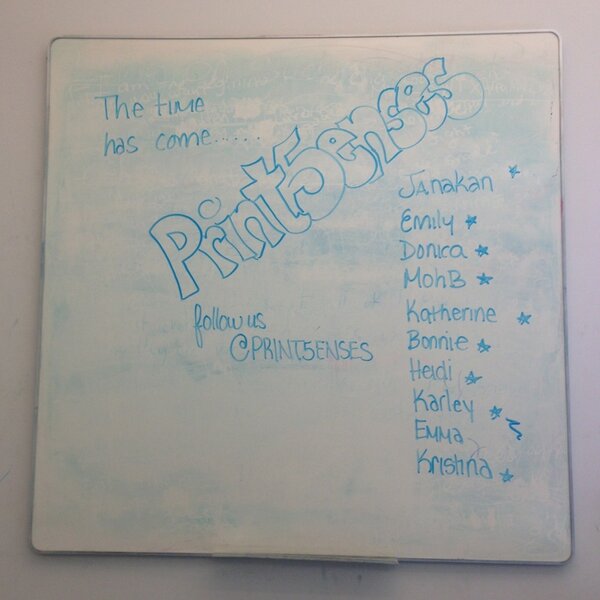 The time
has come......
Print5enses
follow us
@PRINT5ENSES
Janakan
Emily
Donica
MohB
Katherine
Bonnie
Heidi
Karley
Emma
Kristina